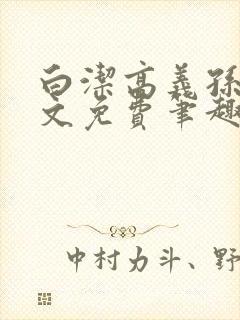 白潔高義孫
文免費筆趣
中村力斗、野